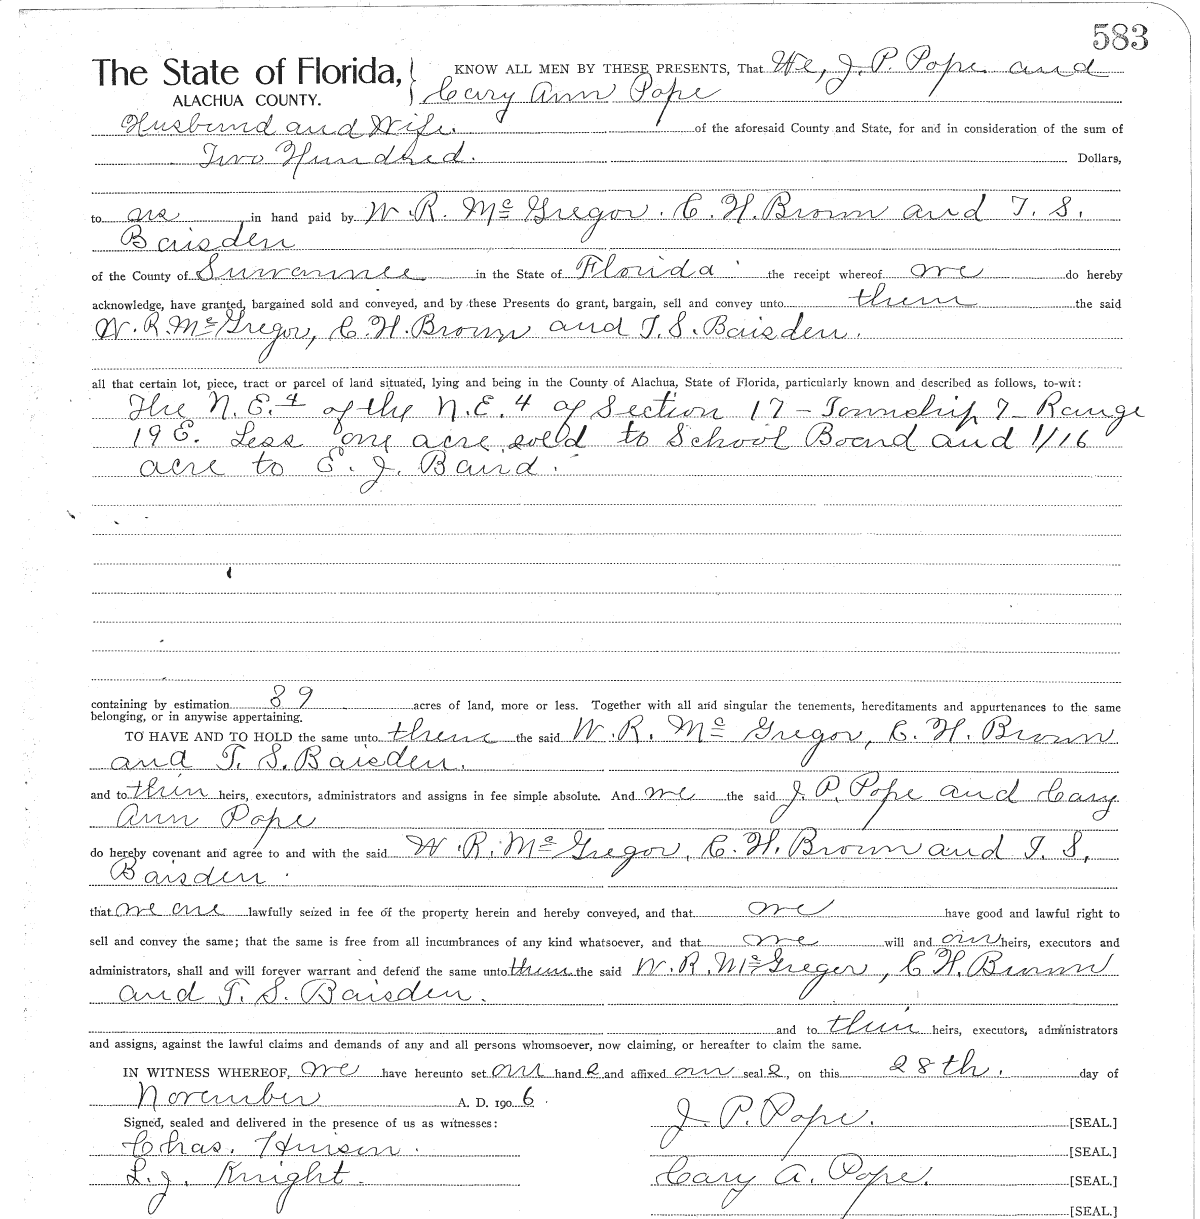 583
The State of Florida, KNOW ALL MEN BY THESE PRESENTS, That We, J. P. Pope and
ALACHUA COUNTY. Cary Ann Pope
Husband and Wife. of the aforesaid County and State, for and in consideration of the sum of
Two Hundred. Dollars,
to us in hand paid by W. R. McGregor. C. H. Brown and T. S.
Baisden
of the County of Suwannee in the State of Florida the receipt whereof we do hereby
acknowledge, have granted, bargained sold and conveyed, and by these Presents do grant, bargain, sell and convey unto them the said
W. R. McGregor, C. H. Brown and T. S. Baisden.
all that certain lot, piece, tract or parcel of land situated, lying and being in the County of Alachua, State of Florida, particularly known and described as follows, to-wit:
The N. E. 4 of the N. E. 4 of Section 17 - Township 7 - Range
19 E. Less one acre sold to School Board and 1/16
acre to E. J. Baird.
containing by estimation 39 acres of land, more or less. Together with all and singular the tenements, hereditaments and appurtenances to the same
belonging, or in anywise appertaining.
TO HAVE AND TO HOLD the same unto them the said W. R. McGregor, C. H. Brown
and T. S. Baisden.
and to their heirs, executors, administrators and assigns in fee simple absolute. And we the said J. P. Pope and Cary
Ann Pope
do hereby covenant and agree to and with the said W. R. McGregor, C. H. Brown and T. S.
Baisden.
that we are lawfully seized in fee of the property herein and hereby conveyed, and that we have good and lawful right to
sell and convey the same; that the same is free from all incumbrances of any kind whatsoever, and that we will and our heirs, executors and
administrators, shall and will forever warrant and defend the same unto them the said W. R. McGregor, C. H. Brown
and T. S. Baisden.
and to their heirs, executors, administrators
and assigns, against the lawful claims and demands of any and all persons whomsoever, now claiming, or hereafter to claim the same.
IN WITNESS WHEREOF, we have hereunto set our hands and affixed our seals, on this 28th. day of
November A. D. 1906.
Signed, sealed and delivered in the presence of us as witnesses: J. P. Pope. [SEAL.]
Chas. [SEAL.]
L. J. Knight. Cary A. Pope. [SEAL.]
[SEAL.]